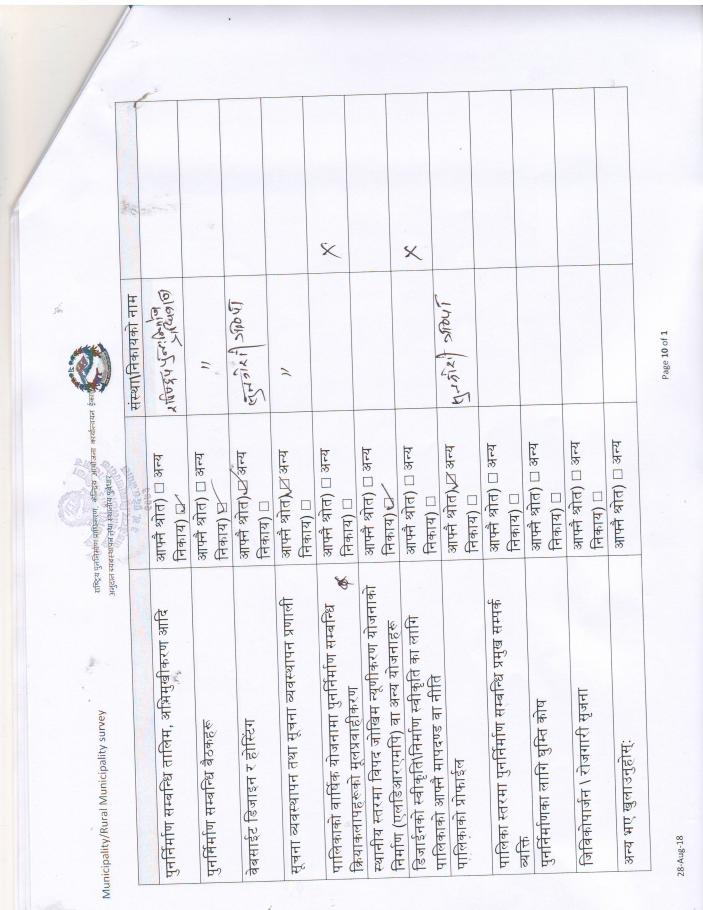 Municipality/Rural Municipality survey
राष्ट्रिय पुनर्निर्माण प्राधिकरण, केन्द्रिय आयोजना कार्यान्वयन ईका
संस्था\निकायको नाम
पुनर्निर्माण सम्बन्धि तालिम, अभिमुखीकरण आदि
आफ्नै श्रोत) □ अन्य
निकाय) ☑
पुनर्मिर्माण सम्बन्धि बैठकहरू
आफ्नै श्रोत) □ अन्य
निकाय) ☑
"
वेबसाईट डिजाइन र होस्टिंग
आफ्नै श्रोत) ☑ अन्य
निकाय) □
सूचना व्यवस्थापन तथा सूचना व्यवस्थापन प्रणाली
आफ्नै श्रोत) ☑ अन्य
निकाय) □
"
पालिकाको वार्षिक योजनामा पुनर्निर्माण सम्बन्धि
क्रियाकलापहरूको मूलप्रवाहीकरण
आफ्नै श्रोत) □ अन्य
निकाय) □
X
स्थानीय स्तरमा विपद जोखिम न्यूणीकरण योजनाको
निर्माण (एलडिआरएमपि) वा अन्य योजनाहरू
आफ्नै श्रोत) □ अन्य
निकाय) ☑
डिजाईनको स्वीकृति\निर्माण स्वीकृति का लागि
पालिकाको आफ्नै मापदण्ड वा नीति
आफ्नै श्रोत) □ अन्य
निकाय) □
X
पालिकाको प्रोफाईल
आफ्नै श्रोत) ☑ अन्य
निकाय) □
पालिका स्तरमा पुनर्निर्माण सम्बन्धि प्रमुख सम्पर्क
व्यक्ति
आफ्नै श्रोत) □ अन्य
निकाय) □
पुनर्निर्माणका लागि घुम्ति कोष
आफ्नै श्रोत) □ अन्य
निकाय) □
जिविकोपार्जन \ रोजगारी सृजना
आफ्नै श्रोत) □ अन्य
निकाय) □
अन्य भए खुलाउनुहोस्:
आफ्नै श्रोत) □ अन्य
28-Aug-18
Page 10 of 1